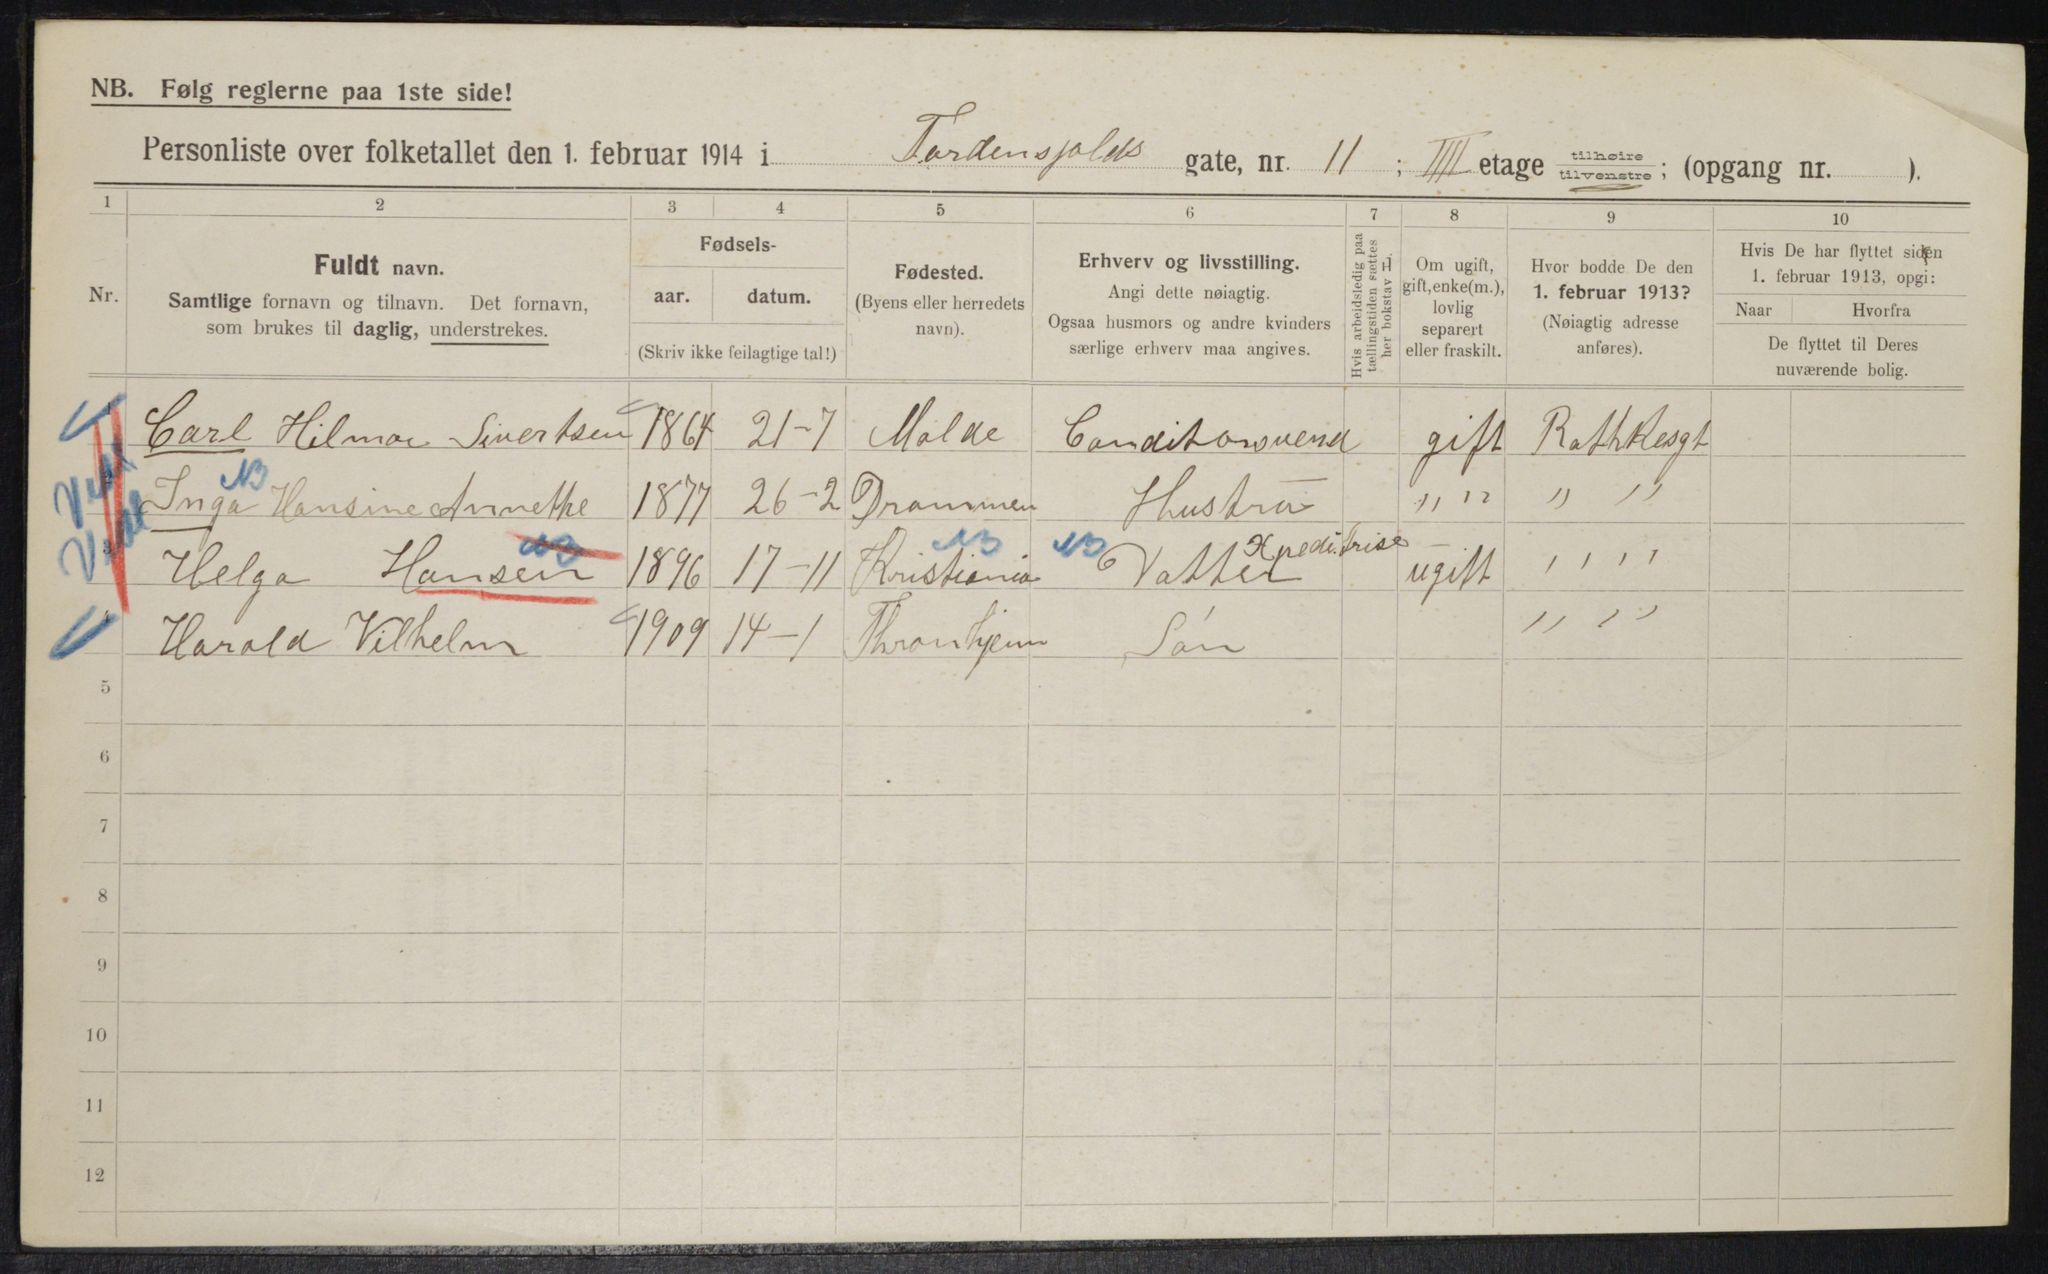 NB. Følg reglerne paa 1ste side!
Personliste over folketallet den 1. februar 1914 i Tordensjolds gate, nr. 11 ; III etage tilhøire tilvenstre ; (opgang nr. ).
1 2 3 4 5 6 7 8 9 10
Nr.
Fuldt navn.
Samtlige fornavn og tilnavn. Det fornavn,
som brukes til daglig, understrekes.
Fødsels-
aar. datum.
(Skriv ikke feilagtige tal!)
Fødested.
(Byens eller herredets
navn).
Erhverv og livsstilling.
Angi dette nøiagtig.
Ogsaa husmors og andre kvinders
særlige erhverv maa angives.
Hvis arbeidsledig paa
tællingstiden sættes
her bokstav H
Om ugift,
gift, enke(m.),
lovlig
separert
eller fraskilt.
Hvor bodde De den
1. februar 1913?
(Nøiagtig adresse
anføres).
Hvis De har flyttet siden
1. februar 1913, opgi:
Naar Hvorfra
De flyttet til Deres
nuværende bolig.
1 Carl Hilmar Sivertsen 1864 21-7 Molde Conditorsvend gift Rathkesgt
NB
2 Inga Hansine Annethe 1877 26-2 Drammen Hustru " " " "
NB NB NB Xpeditrise
3 Helga Hansen 1896 17-11 Kristiania Datter ugift " "
4 Harald Vilhelm 1909 14-1 Thronhjem Sön " "
5
6
7
8
9
10
11
12